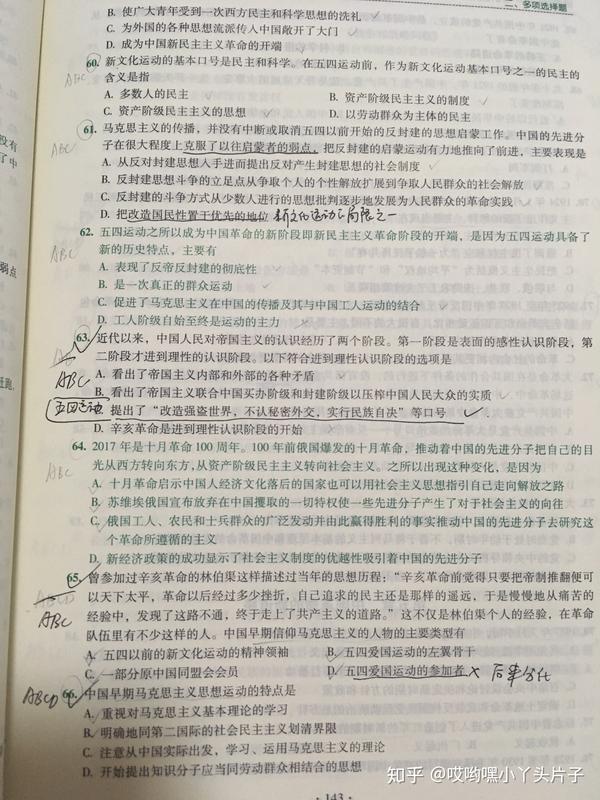 二、多项选择题
B. 使广大青年受到一次西方民主和科学思想的洗礼
C. 为外国的各种思想流派传人中国敞开了大门
D. 成为中国新民主主义革命的开端
60. 新文化运动的基本口号是民主和科学。在五四运动前，作为新文化运动基本口号之一的民主的
含义是指
A. 多数人的民主 B. 资产阶级民主主义的制度
C. 资产阶级民主主义的思想 D. 以劳动群众为主体的民主
ABC
61. 马克思主义的传播，并没有中断或取消五四以前开始的反封建的思想启蒙工作。中国的先进分
子在很大程度上克服了以往启蒙者的弱点，把反封建的启蒙运动有力地推向了前进，主要表现是
A. 从反对封建思想人手进而提出反对产生封建思想的社会制度
B. 反封建思想斗争的立足点从争取个人的个性解放扩展到争取人民群众的社会解放
C. 反封建的斗争方式从少数人进行的思想批判逐步地发展为人民群众的革命实践
D. 把改造国民性置于优先的地位 新文化运动局限之一
ABC
62. 五四运动之所以成为中国革命的新阶段即新民主主义革命阶段的开端，是因为五四运动具备了
新的历史特点，主要有
A. 表现了反帝反封建的彻底性
B. 是一次真正的群众运动
C. 促进了马克思主义在中国的传播及其与中国工人运动的结合
D. 工人阶级自始至终是运动的主力
63. 近代以来，中国人民对帝国主义的认识经历了两个阶段。第一阶段是表面的感性认识阶段，第
二阶段才进到理性的认识阶段。以下符合进到理性认识阶段的选项是
ABC
A. 看出了帝国主义内部和外部的各种矛盾
B. 看出了帝国主义联合中国买办阶级和封建阶级以压榨中国人民大众的实质
五四运动
C. 提出了“改造强盗世界，不认秘密外交，实行民族自决”等口号
D. 辛亥革命是进到理性认识阶段的开始
64. 2017 年是十月革命 100 周年。100 年前俄国爆发的十月革命，推动着中国的先进分子把自己的目
光从西方转向东方，从资产阶级民主主义转向社会主义。之所以出现这种变化，是因为
ABC
A. 十月革命启示中国人经济文化落后的国家也可以用社会主义思想指引自己走向解放之路
B. 苏维埃俄国宣布放弃在中国攫取的一切特权使一些先进分子产生了对于社会主义的向往
C. 俄国工人、农民和士兵群众的广泛发动并由此赢得胜利的事实推动中国的先进分子去研究这
个革命所遵循的主义
D. 新经济政策的成功显示了社会主义制度的优越性吸引着中国的先进分子
65. 曾参加过辛亥革命的林伯渠这样描述过当年的思想历程：“辛亥革命前觉得只要把帝制推翻便可
以天下太平，革命以后经过多少挫折，自己追求的民主还是那样的遥远，于是慢慢地从痛苦的
ABC
经验中，发现了这路不通，终于走上了共产主义的道路。”这不仅是林伯渠个人的经验，在革命
队伍里有不少这样的人。中国早期信仰马克思主义的人物的主要类型有
A. 五四以前的新文化运动的精神领袖 B. 五四爱国运动的左翼骨干
C. 一部分原中国同盟会会员 D. 五四爱国运动的参加者 × 后来分化
ABCD
66. 中国早期马克思主义思想运动的特点是
A. 重视对马克思主义基本理论的学习
B. 明确地同第二国际的社会民主主义划清界限
C. 注意从中国实际出发，学习、运用马克思主义的理论
D. 开始提出知识分子应当同劳动群众相结合的思想
· 143 ·
知乎 @哎哟嘿小丫头片子